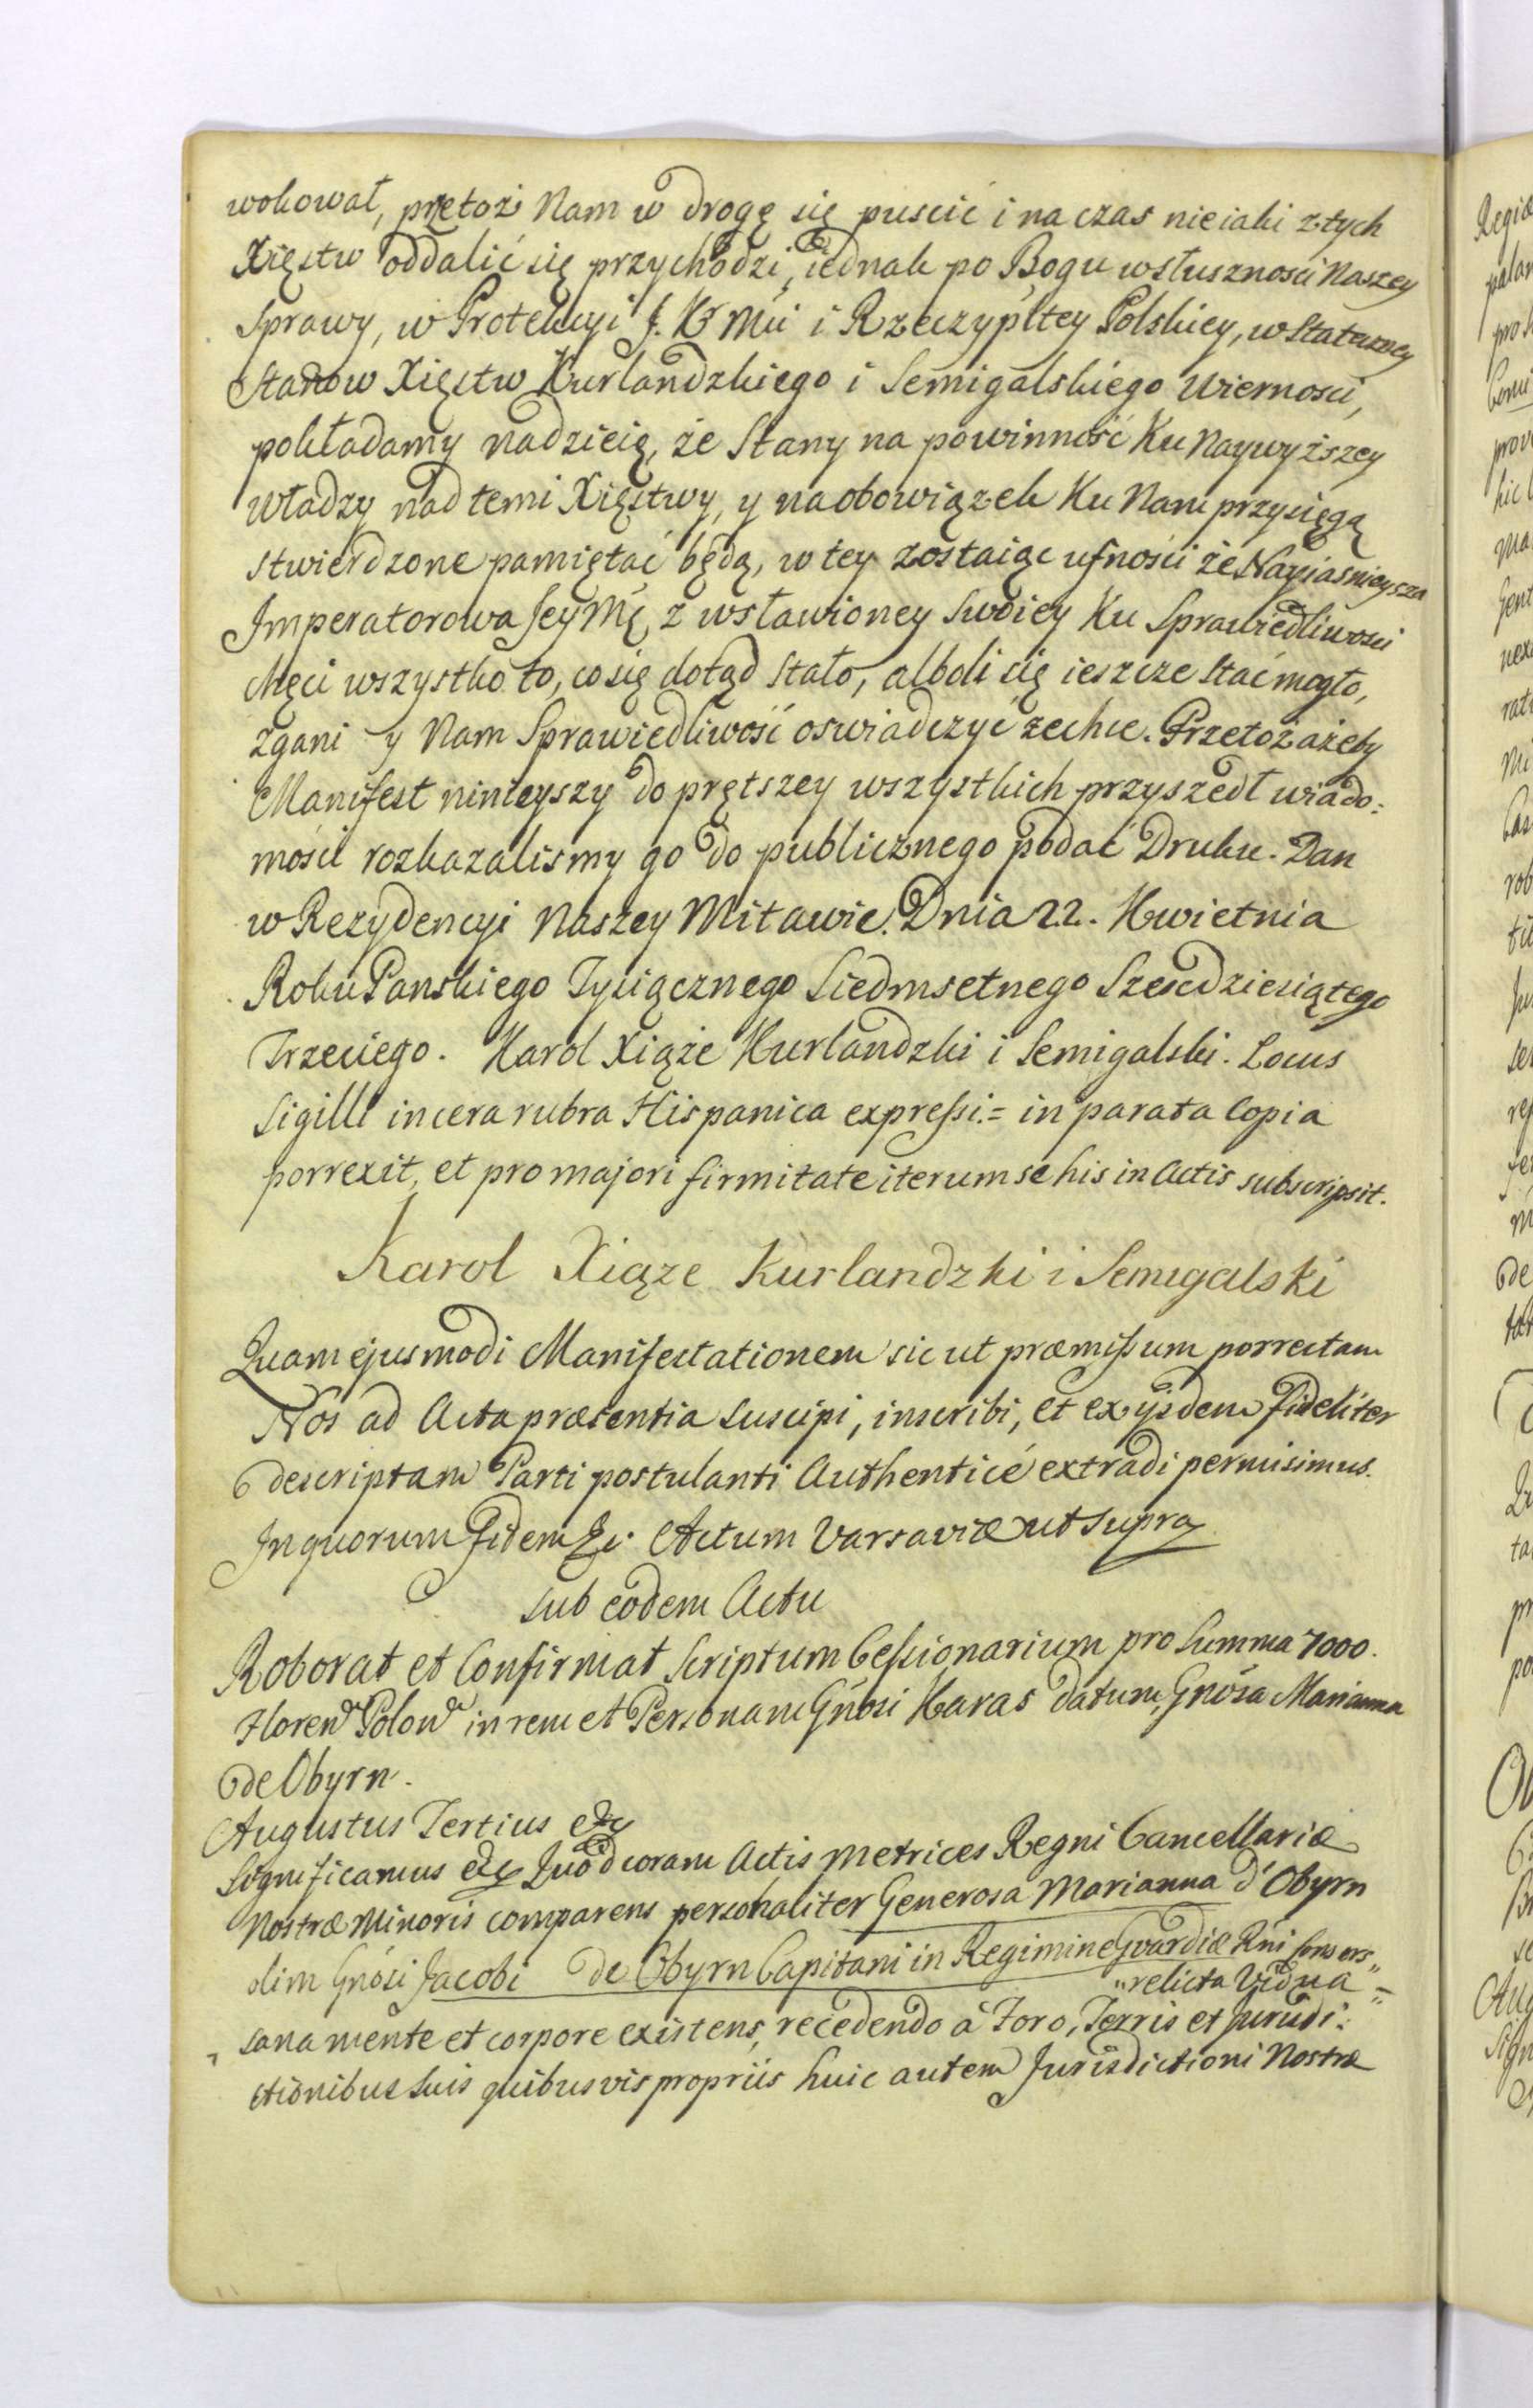 wokował, przetoż Nam w drogę się puscić i na czas nieiaki z tych
Xięstw oddalić się przychodzi, iednak po Bogu w słusznosci Naszey
Sprawy, w Protekcyi J. K Mci i Rzeczypltey Polskiey, w Stateczney
Stanow Xięstw Kurlandzkiego i Semigalskiego Wiernosci,
pokładamy nadzieię, że Stany na powinność Ku Naywyższey
Władzy nad temi Xięstwy, y na obowiązek Ku Nam przysięgą
stwierdzone pamiętać będą, w tey zostaiąc ufności że Nayiasnieysza
Imperatorowa Jey Mć z wsławioney Swoiey Ku Sprawiedliwosci
chęci wszystko to, co się dotąd Stało, alboli się ieszcze Stać mogło,
zgani y Nam Sprawiedliwość oswiadczyć zechce. Przetoż ażeby
Manifest ninieyszy do prętszey wszystkich przyszedł wiado:
mości rozkazalismy go do publicznego podać Druku. Dan
w Rezydencyi Naszey Mitawie. Dnia 22. Kwietnia
Roku Panskiego Tysiącznego Siedmsetnego Szescdziesiątego
Trzeciego. Karol Xiąże Kurlandzki i Semigalski. Locus
Sigilli in cera rubra Hispanica expressi.= in parata Copia
porrexit, et pro majori firmitate iterum se his in Actis subscripsit.
Karol Xiąze Kurlandzki i Semigalski
Quam ejusmodi Manifestationem sic ut præmissum porrectam
Nos ad Acta præsentia suscipi, inscribi, et ex ijsdem fideliter
descriptam Parti postulanti Authenticé extradi permisimus.
In quorum fidem &c. Actum Varsaviæ ut supra
sub eodem Actu
Roborat et Confirmat Scriptum Cessionarium pro Summa 7000.
Floren Polon in rem et Personam Gnosi Karas datum, Gnosa Marianna
de Obyrn.
Augustus Tertius etc
Significamus etc Quod coram Actis Metrices Regni Cancellariæ
Nostræ Minoris comparens personaliter Generosa Marianna d'Obyrn
olim Gnosi Jacobi de Obyrn Capitani in Regimine Gvardiæ Rni Consors
"relicta Vidua"=
sana mente et corpore existens, recedendo à Foro, Terris et Jurisdi:
ctionibus suis quibusvis propriis huic autem Jurisdictioni Nostræ